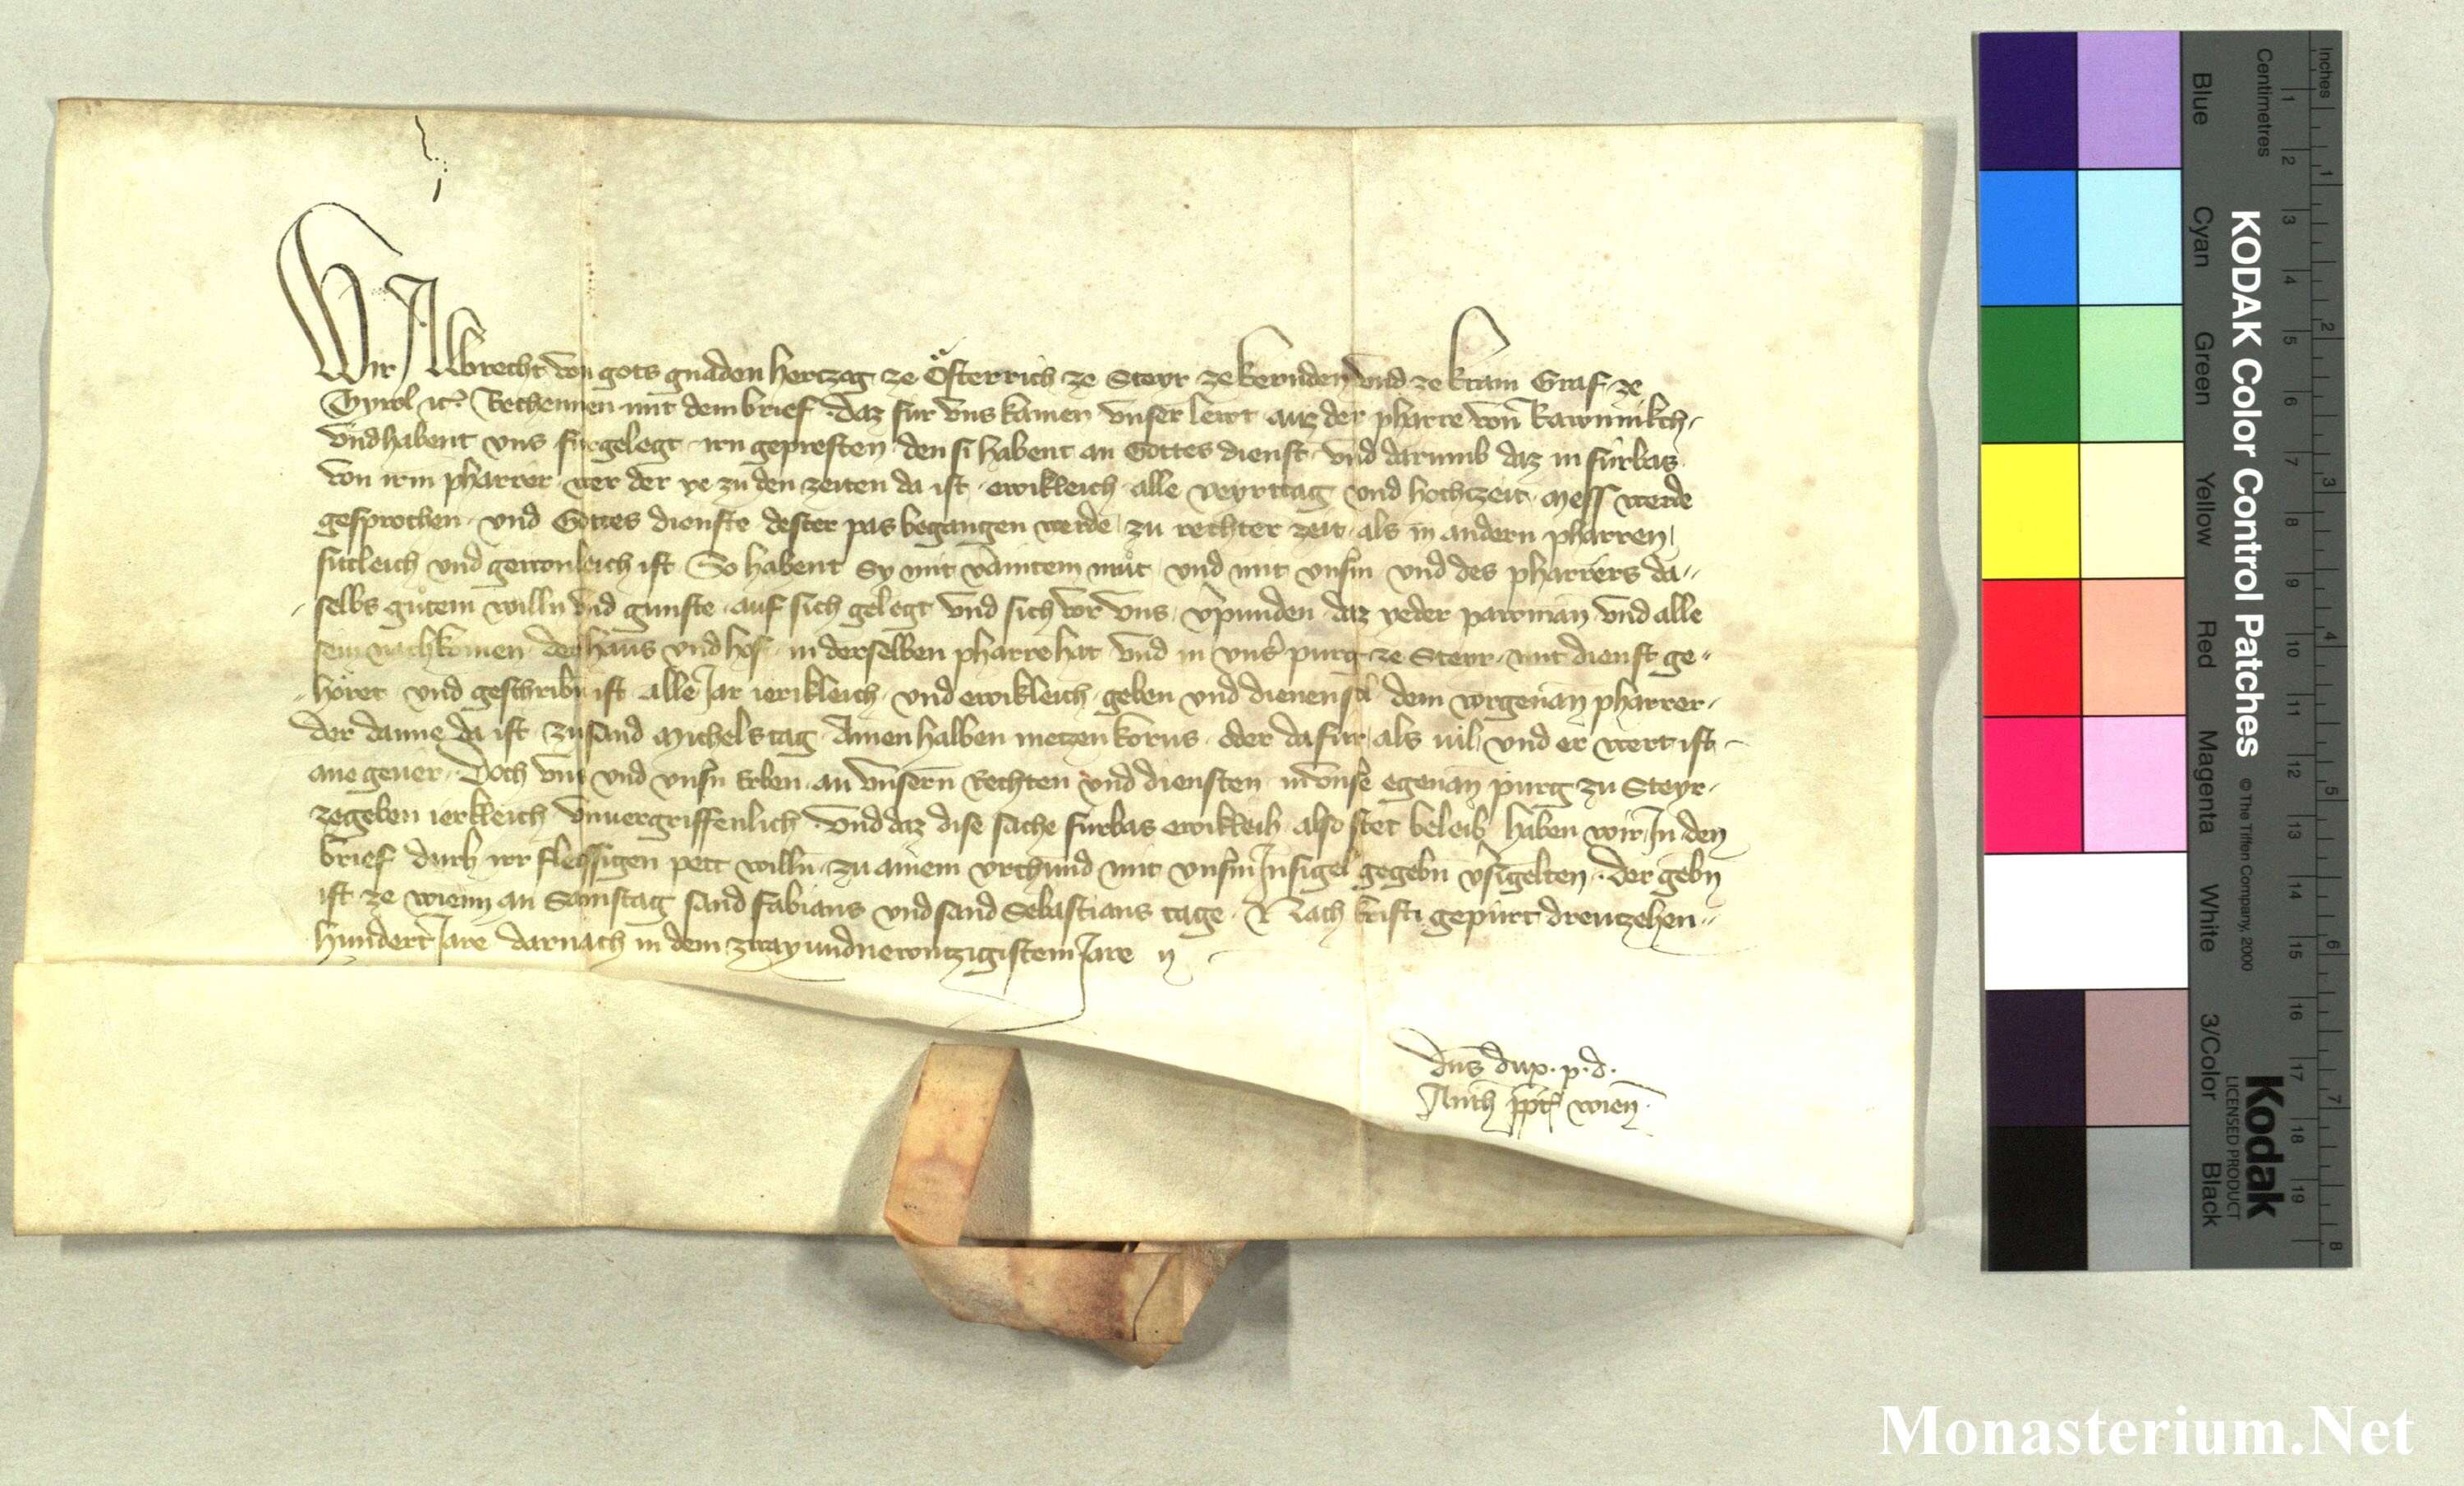 Wir Albrecht von gots gnaden hertzog ze Österrich ze Steyr ze kernden und ze krain Graf ze
Tyrol etc. Bechennen mit dem brief daz fur uns kamen unser lewt auz der pharre von
und habent uns furgelegt irn gepresten den si habent an Gottes dienst und darumb daz in furbas
von irm pharrer wer der ye zu den zeiten da ist ewikleich alle veyrttag und hochtzeit mess werde
gesprochen und Gottes dienste dester pas begangen werde zu rechter zeit als in andern pharren
sitleich und gewonleich ist So habent Sy mit vaintem mut und mit unsm und des pharrers da
selbs gutem willn und gunste auf sich gelegt und sich vor uns vpunden daz yeder pawman und alle
sein nachkomen der haus und hof in derselben pharre hat und in uns purg ze Steyr mit dienst ge
höret und geschribn ist alle Jar ierikleich und ewikleich geben und dienen sol dem vorgenan pharrer
der danne da ist zu sand Michelstag Ainen halben metzen korns oder dafur als vil und er wert ist
ane gever Doch uns und unsn Erben an unsern Rechten und diensten in unsr egenan purg zu Steyr
zegeben ierkleich unvergriffenlich Und daz dise sache furbas ewikleich also stet beleib haben wir In den
brief durh irr fleissigen pett willn zu ainem urchund mit unsm Insigel gegebn vsigelten der gebn
ist ze wienn an Samstag sand Fabians und sand Sebastians tage Nach kristi gepurt dreutzehen
hundert Jare darnach in dem zway und newntzigistem Jare
dns dux. p. d.
Anth ppt wien
Inches
Centimetres
KODAK Color Control Patches
© The Tiffen Company, 2000
Kodak
LICENSED PRODUCT
Blue
Cyan
Green
Yellow
Red
Magenta
White
3/Color
Black
1 2 3 4 5 6 7 8 9 10 11 12 13 14 15 16 17 18 19
1 2 3 4 5 6 7 8
Monasterium.Net